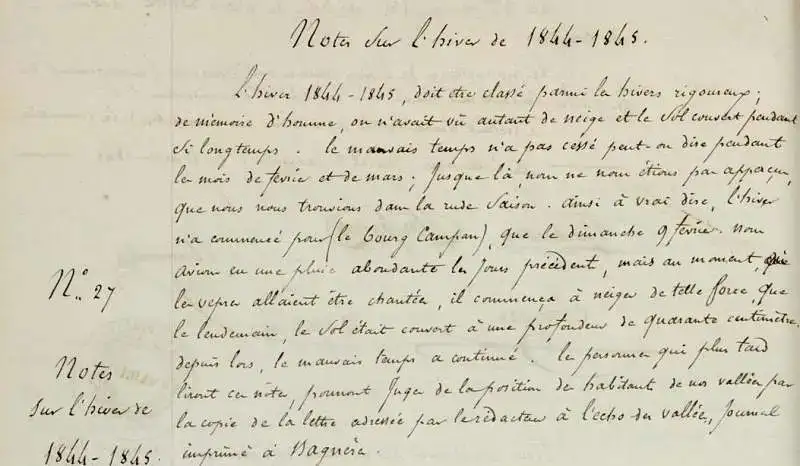 Notes sur l'hiver de 1844-1845.
L'hiver 1844-1845, doit être classé parmi les hivers rigoureux;
de mémoire d'homme, on n'avait vû autant de neige et le sol couvert pendant
si longtemps. le mauvais temps n'a pas cessé peut-on dire pendant
les mois de fevrié et de mars; Jusque là, nous ne nous étions pas apperçus,
que nous nous trouvions dans la rude saison. ainsi à vrai dire, l'hiver
n'a commencé pour (le bourg Campan), que le dimanche 9 fevrier. nous
avions eu une pluie abondante les jours précédent, mais au moment, que
les vepres allaient être chantées, il commença à neiger de telle force, que
le lendemain, le sol était couvert à une profondeur de quarante centimètres.
depuis lors, le mauvais temps a continué. les personnes qui plus tard
liront ces notes, pourront Juger de la position des habitant de nos vallées par
la copie de la lettre adressée par le rédacteur à l'echo des vallées, Journal
imprimé à Bagnères.
N.° 27
Notes
sur l'hiver de
1844-1845.